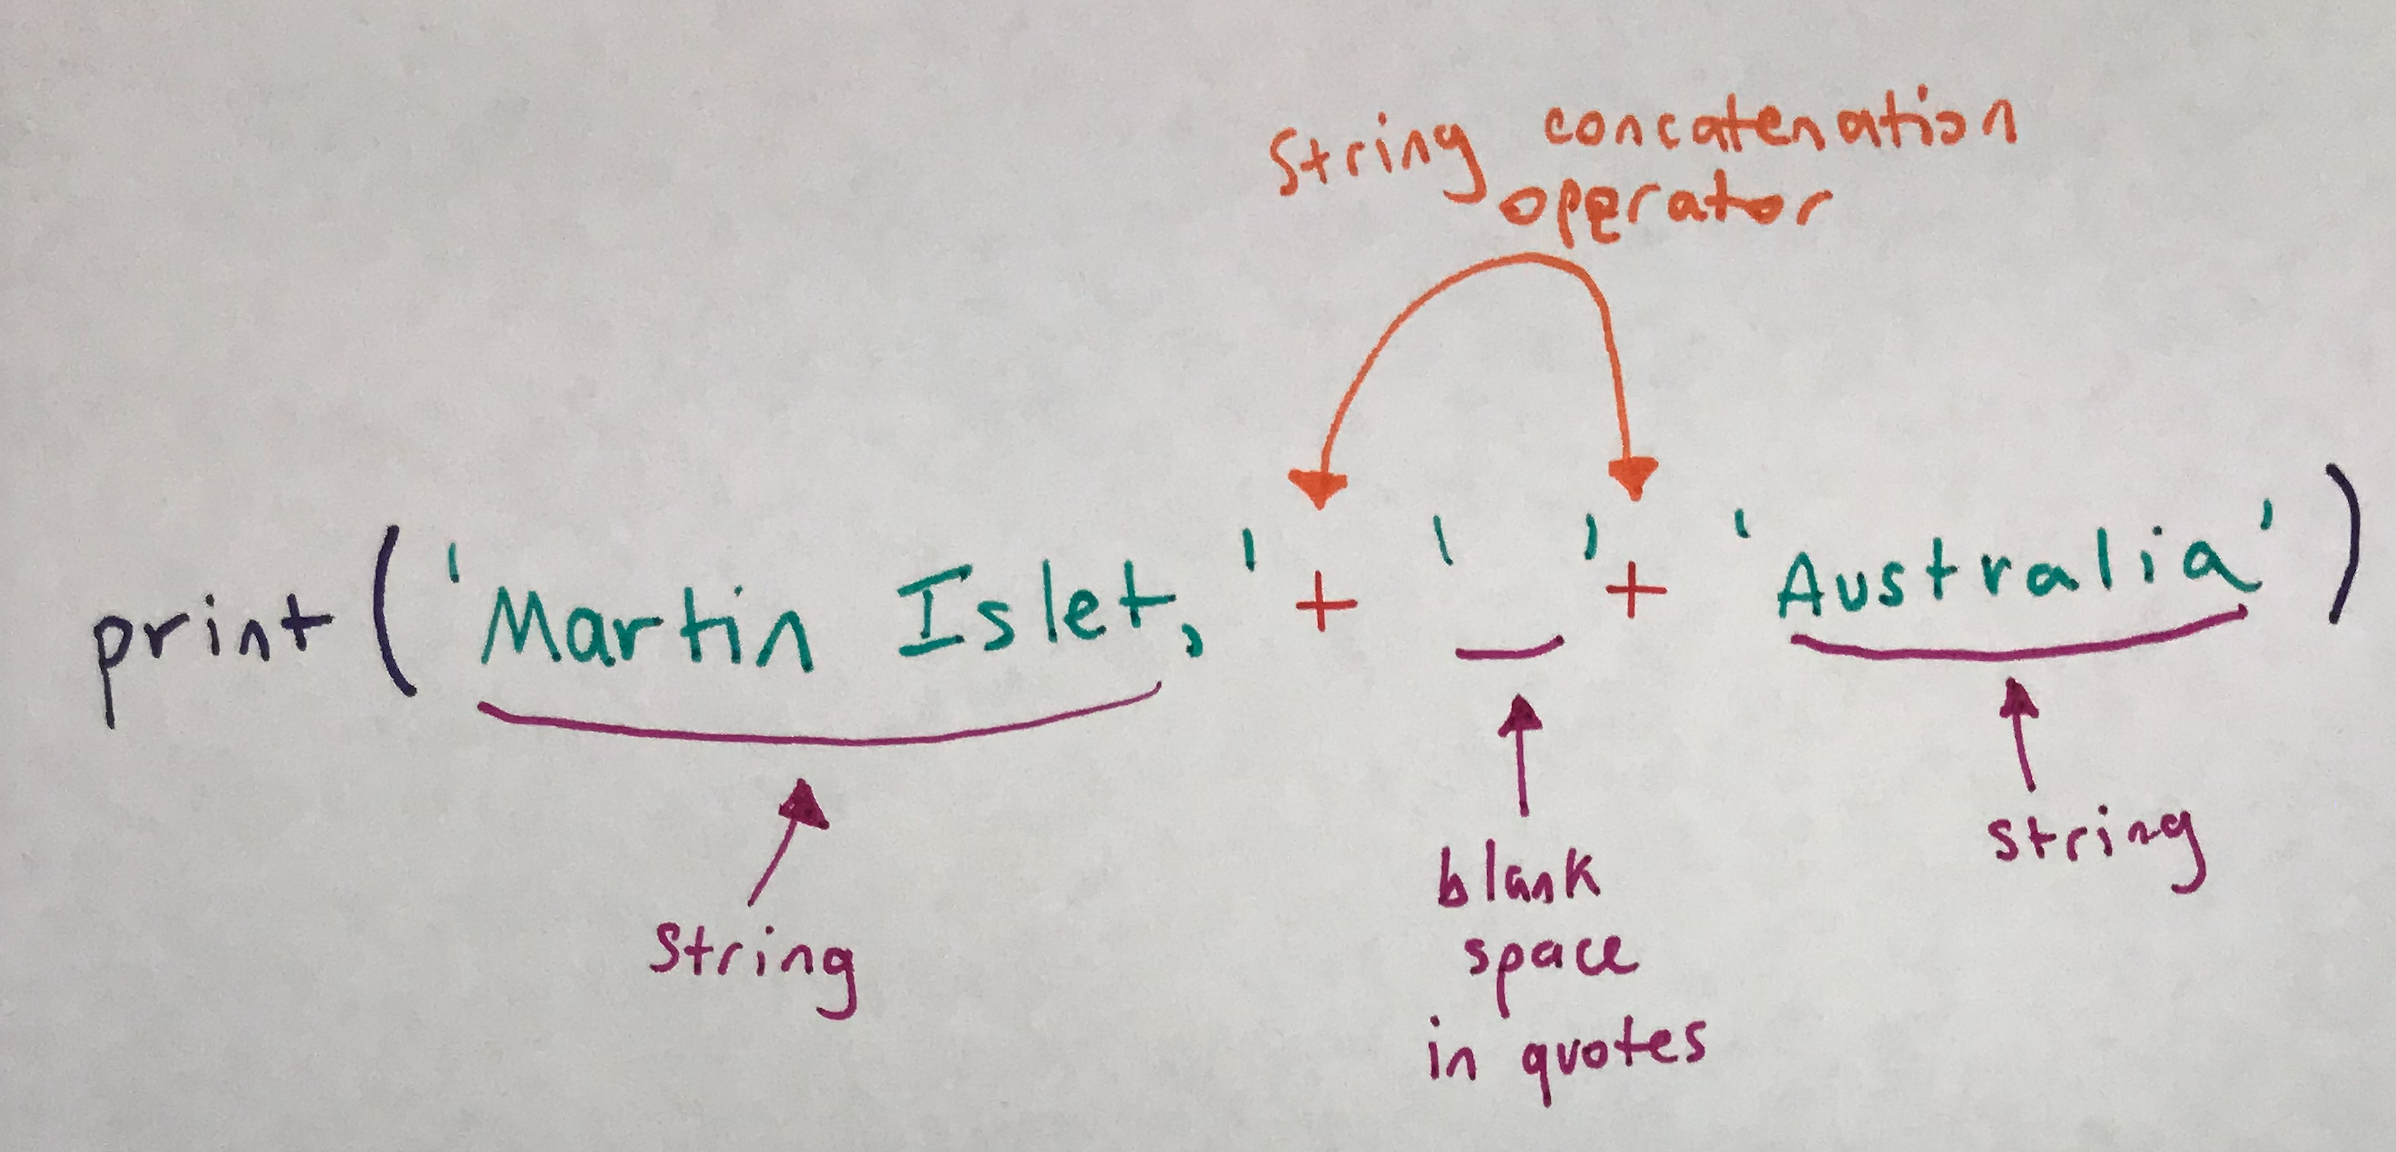 String concatenation
operator
print('Martin Islet,' + ' ' + 'Australia')
String
blank
space
in quotes
string